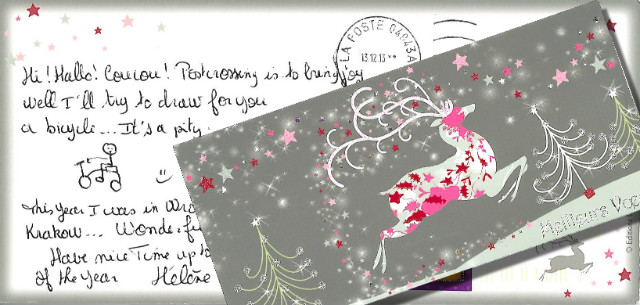 Hi! Hallo! Coucou! Postcrossing is to bring joy
well I'll try to draw for you
a bicycle... It's a pity.
This year I was in
Krakow... Wonderfu
Have nice Time up to
of the year Hélène
LA POSTE 04043A
13.12.13
Meilleurs Voe